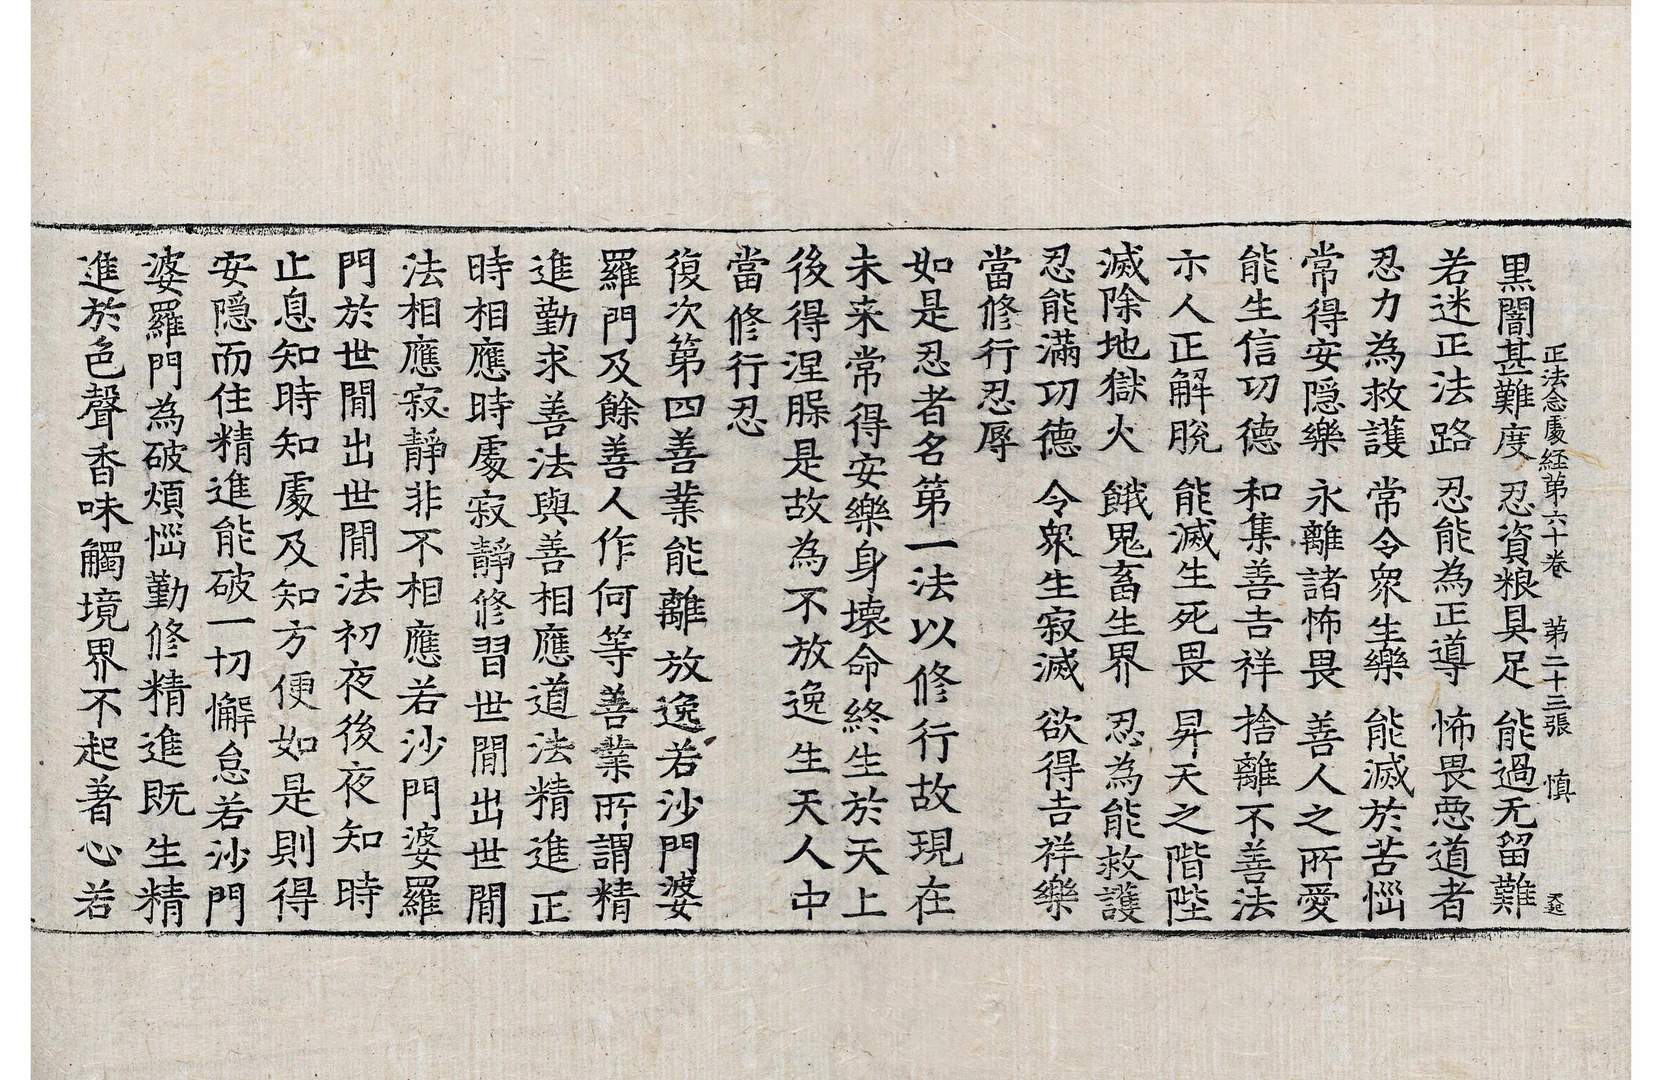 正法念處経第六十卷 第二十三張 慎
黒闇甚難度 忍資粮具足 能過无留難
若迷正法路 忍能為正導 怖畏惡道者
忍力為救護 常令衆生樂 能滅於苦惱
常得安隱樂 永離諸怖畏 善人之所愛
能生信功德 和集善吉祥 捨離不善法
示人正解脫 能滅生死畏 昇天之階陛
滅除地獄火 餓鬼畜生界 忍為能救護
忍能滿功德 令衆生寂滅 欲得吉祥樂
當修行忍辱
如是忍者名第一法以修行故現在
未来常得安樂身壞命終生於天上
後得涅槃是故為不放逸生天人中
當修行忍
復次第四善業能離放逸若沙門婆
羅門及餘善人作何等善業所謂精
進勤求善法與善相應道法精進正
時相應時處寂靜修習世間出世間
法相應寂靜非不相應若沙門婆羅
門於世間出世間法初夜後夜知時
止息知時知處及知方便如是則得
安隱而住精進能破一切懈怠若沙門
婆羅門為破煩惱勤修精進既生精
進於色聲香味觸境界不起著心若